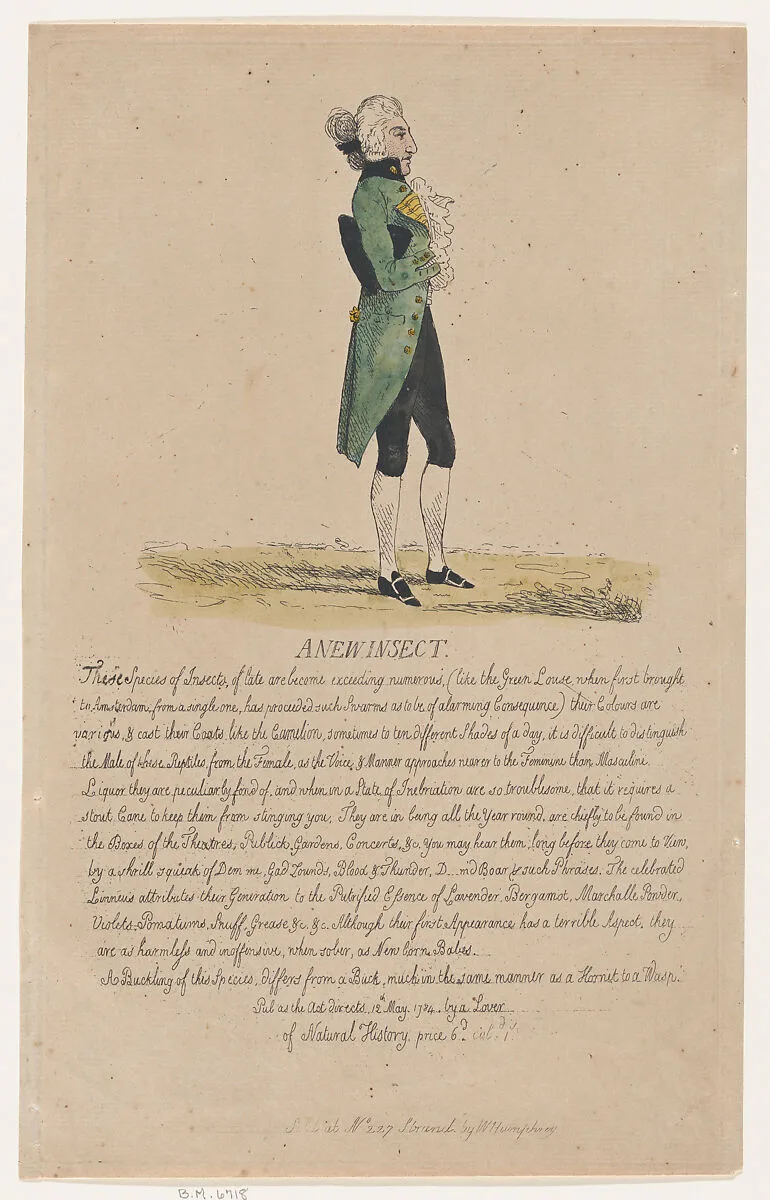 A NEW INSECT.
These Species of Insects, of late are become exceeding numerous, (like the Green Louse, when first brought
to Amsterdam, from a single one, has proceeded such Swarms as to be of alarming Consequence) their Colours are
various, & cast their Coats like the Camelion, sometimes to ten different Shades of a day, it is difficult to distinguish
the Male of these Reptiles, from the Female, as the Voice, & Manner approaches nearer to the Feminine than Masculine
Liquor they are peculiarly fond of, and when in a State of Inebriation are so troublesome, that it requires a
stout Cane to keep them from stinging you, They are in being all the Year round, are chiefly to be found in
the Boxes of the Theatres, Publick Gardens, Concerts, &c. You may hear them, long before they come to View,
by a shrill squeak of Dem me, Gad Zounds, Blood & Thunder, D__nd Boar & such Phrases. The celebrated
Linneus attributes their Generation to the Putrified Essence of Lavender, Bergamot, Marchalle Powder,
Violets, Pomatums, Snuff, Grease &c. &c. Although their first Appearance has a terrible Aspect, they
are as harmless and inoffensive, when sober, as New born Babes.
A Buckling of this Species, differs from a Buck, much in the same manner as a Hornet to a Wasp.
Pub as the Act directs, 12th May, 1784. by a Lover
of Natural History, price 6d. col.d 1s
at No 227 Strand by W Humphrey
B.M. 6718